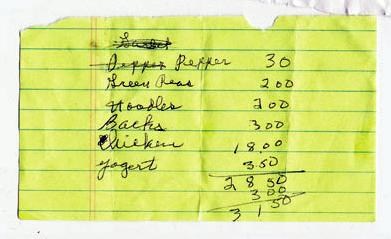 Pepper 30
Green Peas 200
Noodles 200
Backs 300
Chicken 18.00
Yogert 3.50
28 50
3 00
31 50